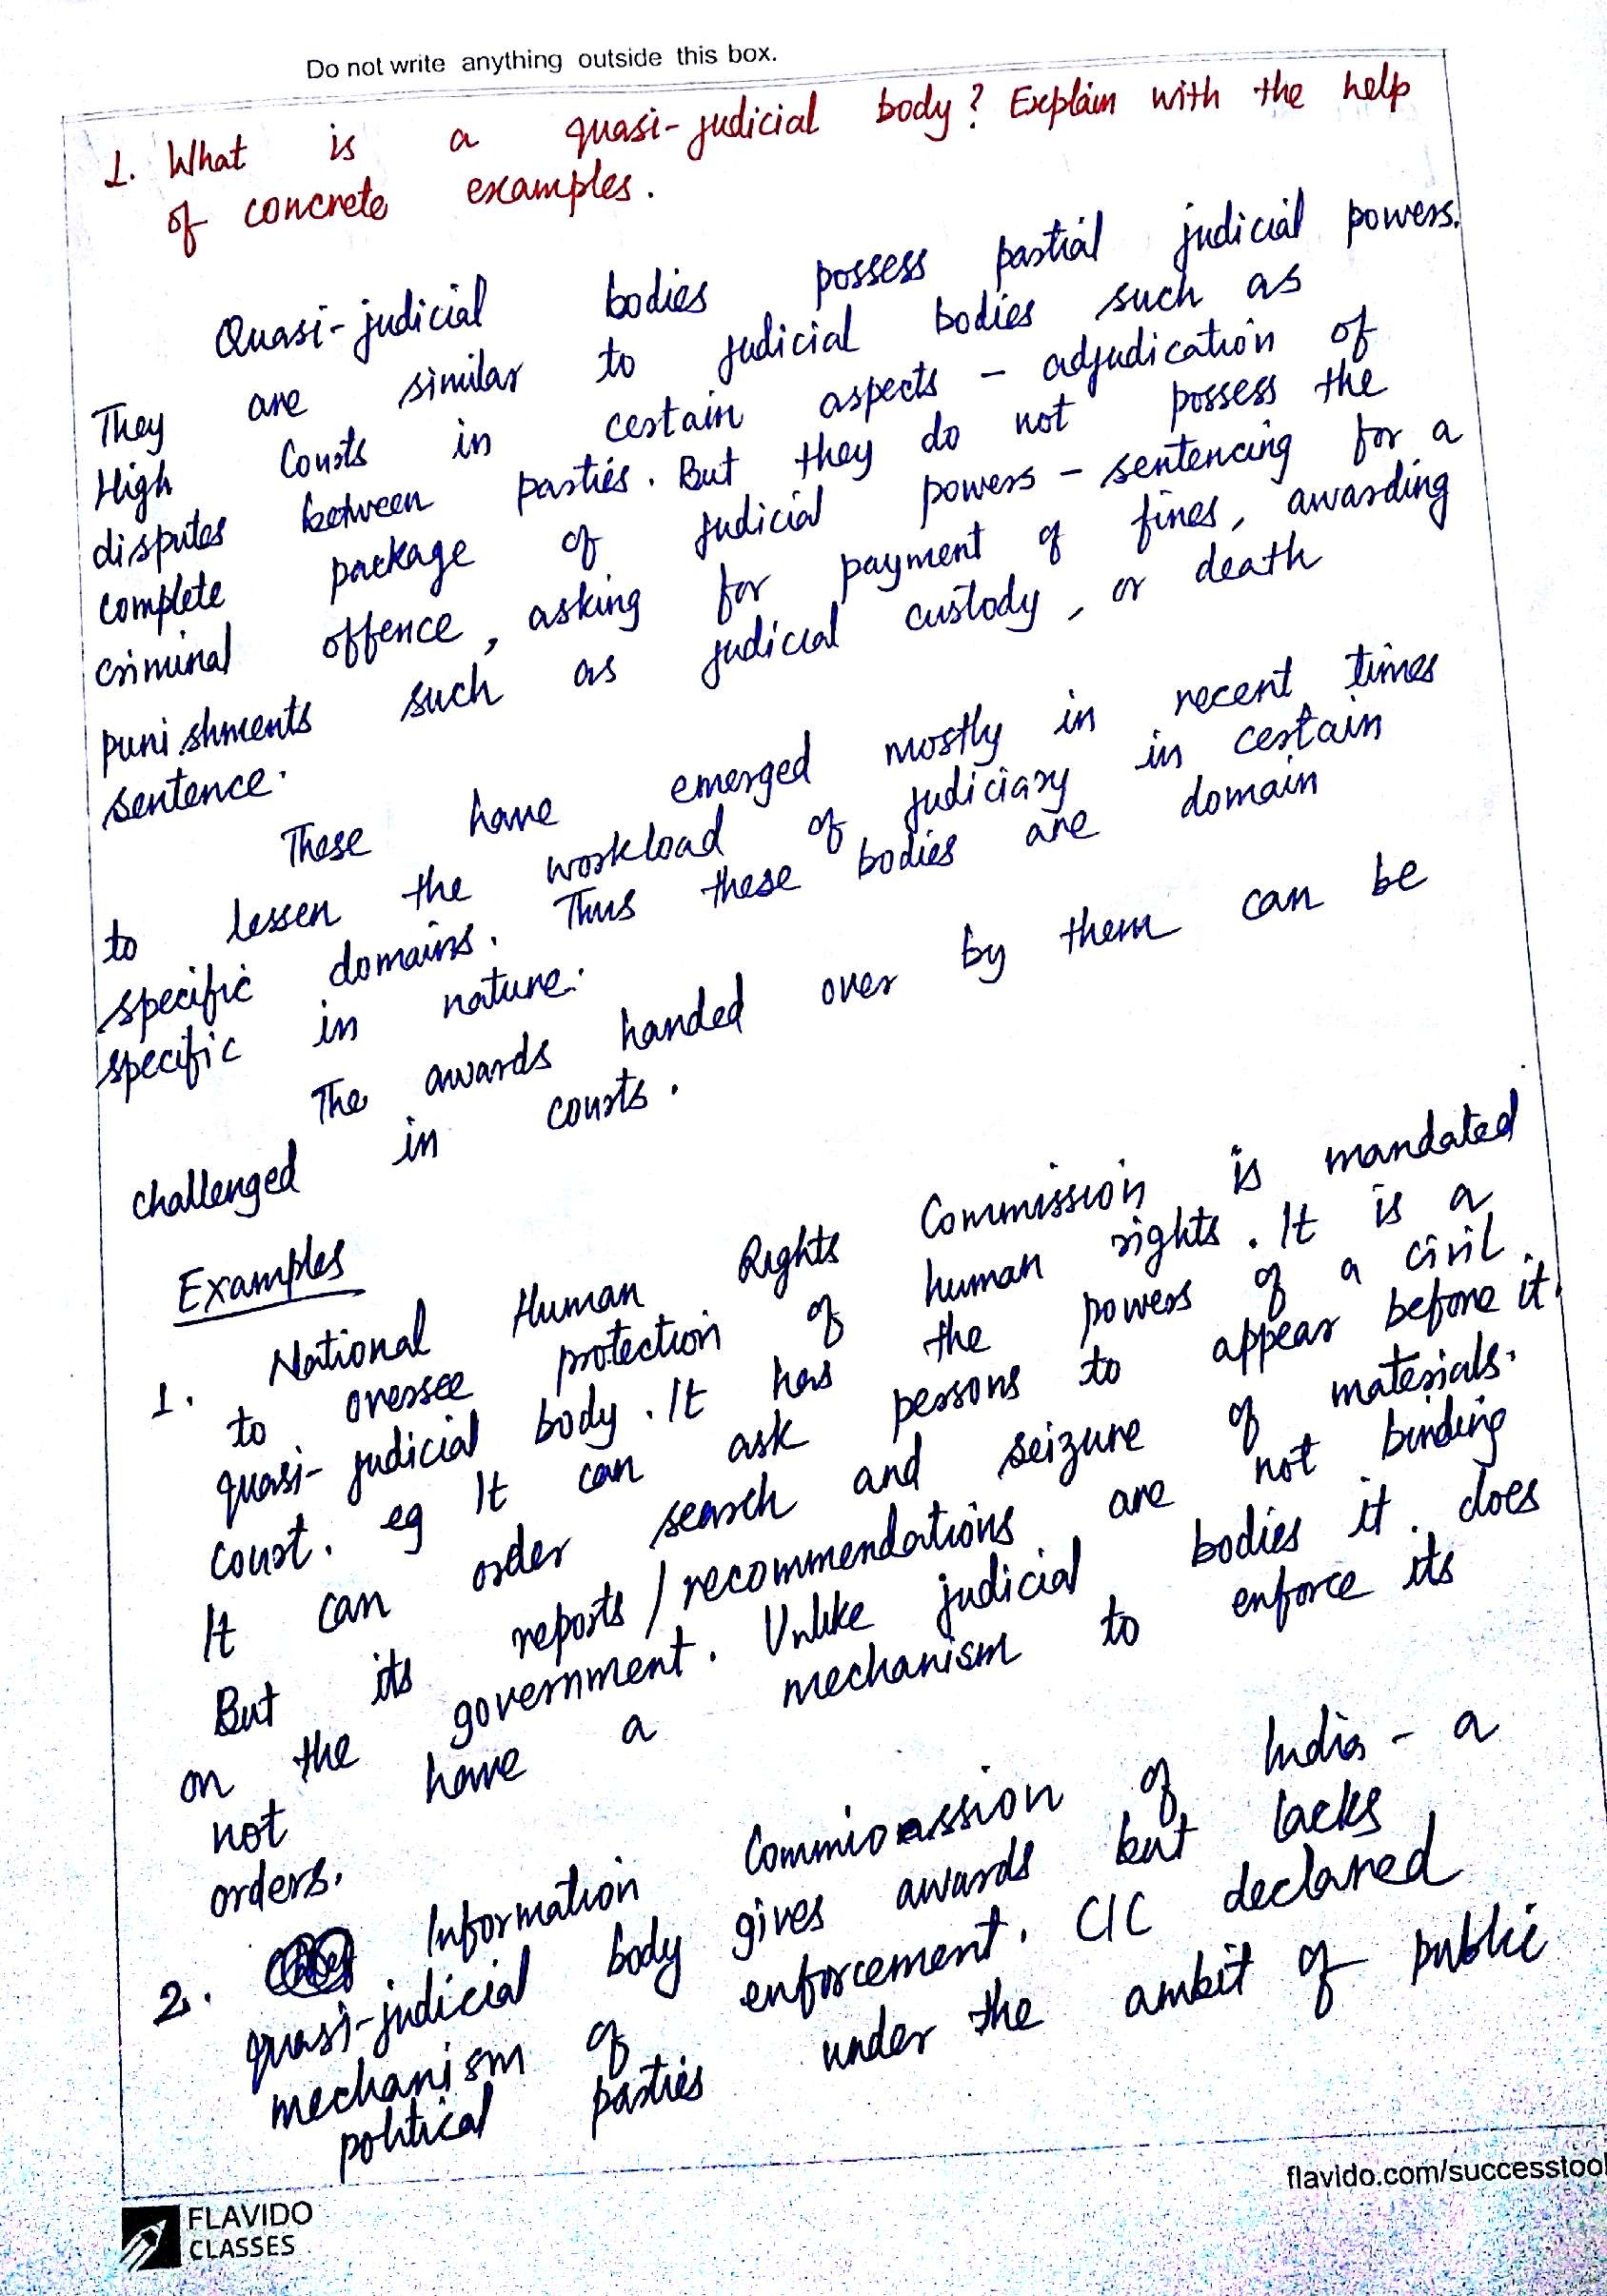 Do not write anything outside this box.
1. What is a quasi-judicial body? Explain with the help
of concrete examples.
Quasi-judicial bodies possess partial judicial powers.
They are similar to judicial bodies such as
High Courts in certain aspects - adjudication of
disputes between parties. But they do not possess the
complete package of judicial powers - sentencing for a
criminal offence, asking for payment of fines, awarding
punishments such as judicial custody, or death
sentence.
These have emerged mostly in recent times
to lessen the workload of judiciary in certain
specific domains. Thus these bodies are domain
specific in nature.
The awards handed over by them can be
challenged in courts.
Examples
1. National Human Rights Commission is mandated
to oversee protection of human rights. It is a
quasi-judicial body. It has the powers of a civil
court. eg It can ask persons to appear before it.
It can order search and seizure of materials.
But its reports/recommendations are not binding
on the government. Unlike judicial bodies it does
not have a mechanism to enforce its
orders.
2. Information Commission of India - a
quasi-judicial body gives awards but lacks
mechanism of enforcement. CIC declared
political parties under the ambit of public
FLAVIDO
CLASSES
flavido.com/successtool